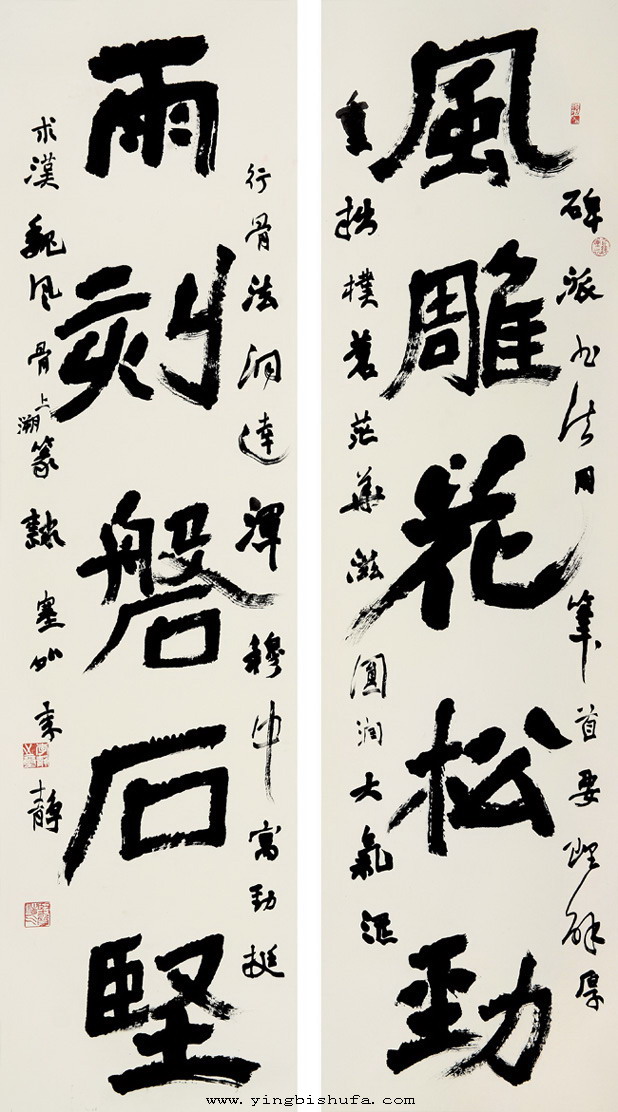 風雕花松勁
碑派书法用筆首要理解厚
重拙樸蒼茫華滋圓潤大氣
雨刻磐石堅
行骨法洞達渾穆中寓勁挺
求漢魏风骨上溯篆隸
靜
www.yingbishufa.com